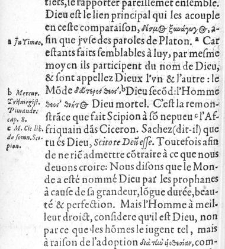 tiers, te rapporter pareillement ensemble.
Dieu est le lien principal qui les acouple
en ceste comparaison, afin
a In Timeo.
que j'vse des paroles de Platon. a Car
estants faits semblables à luy, par mesme
moyen ils participent du nom de Dieu,
& sont appellez Dieux l'vn & l'autre: le
b Mercur.
Trismegist.
Pimandr.
cap. 8.
Mõde b Dieu secõd: l'Homme
Dieu mortel. C'est la remonstrãce
que fait Scipion à sõ nepueu c l'Affriquain
dãs Ciceron. Sachez (dit-il) que
c M. Cic lib.
de somn. Scip.
tu és Dieu, Scito te Deũ esse. Toutesfois afin
de ne rien admettre cõtraire à ce que nous
deuons croire: Nous disons que le Monde
a esté nommé Dieu par les prophanes
à cause de sa grandeur, lõgue durée, beauté
& perfection. Mais l'Homme à meilleur
droict, considere qu'il est Dieu, non
pas par ce que les hõmes le iugent tel, mais
à raison de l'adoption